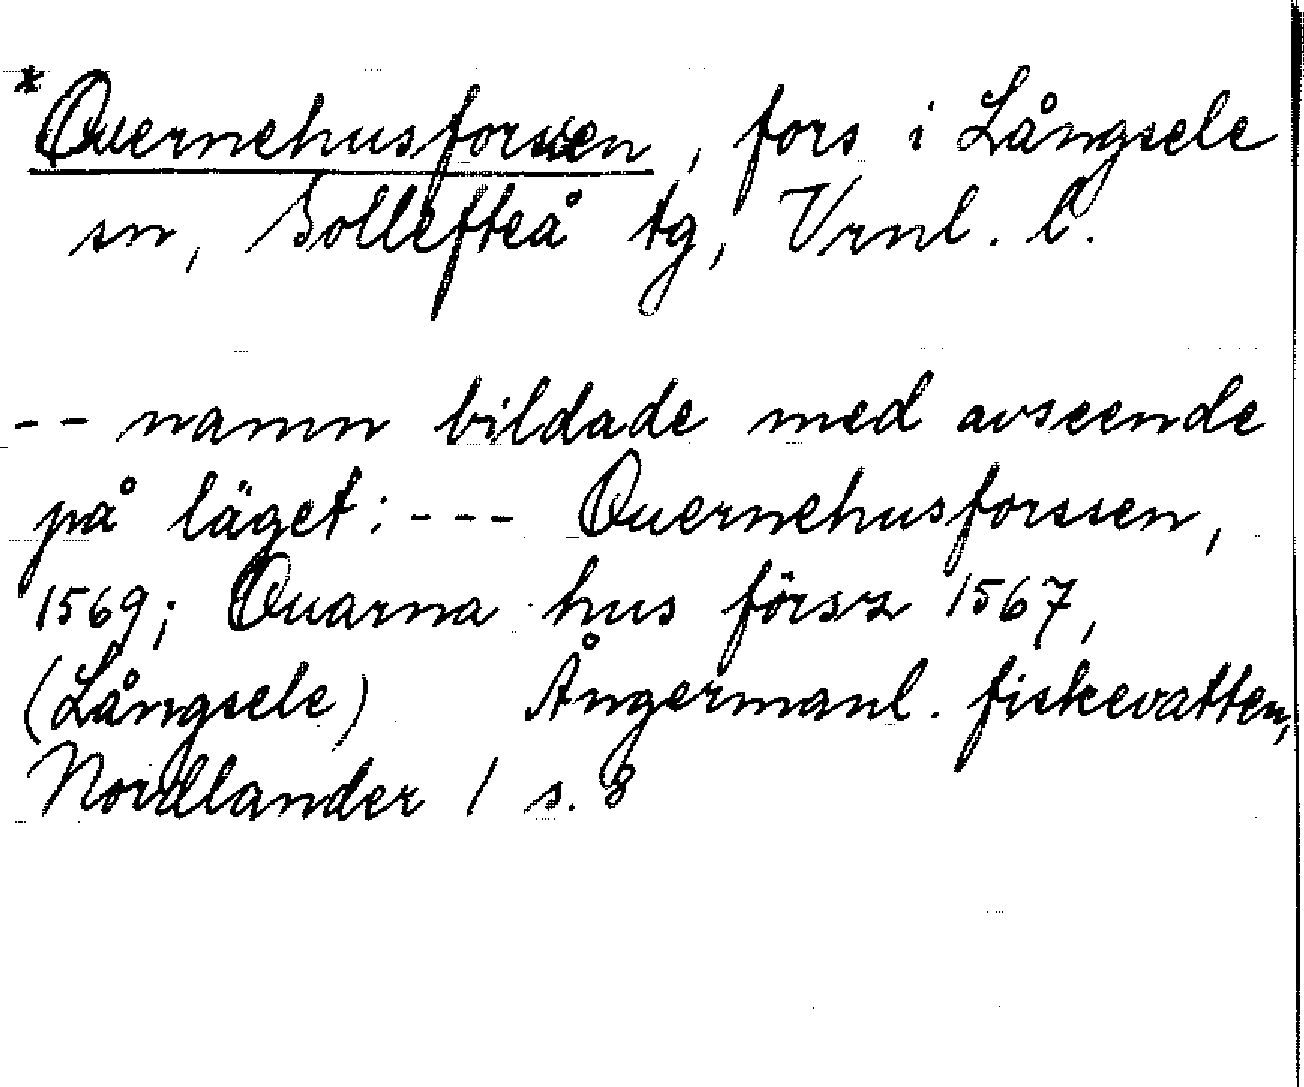 *Quernehusforssen, fors i Långsele
sn, Sollefteå tg, Vrnl. l.
-- namn bildade med avseende
på läget: --- Quernehusforssen,
1569; Quarna hus försz 1567,
(Långsele) Ångermanl. fiskevatten,
Nordlander 1 s. 8